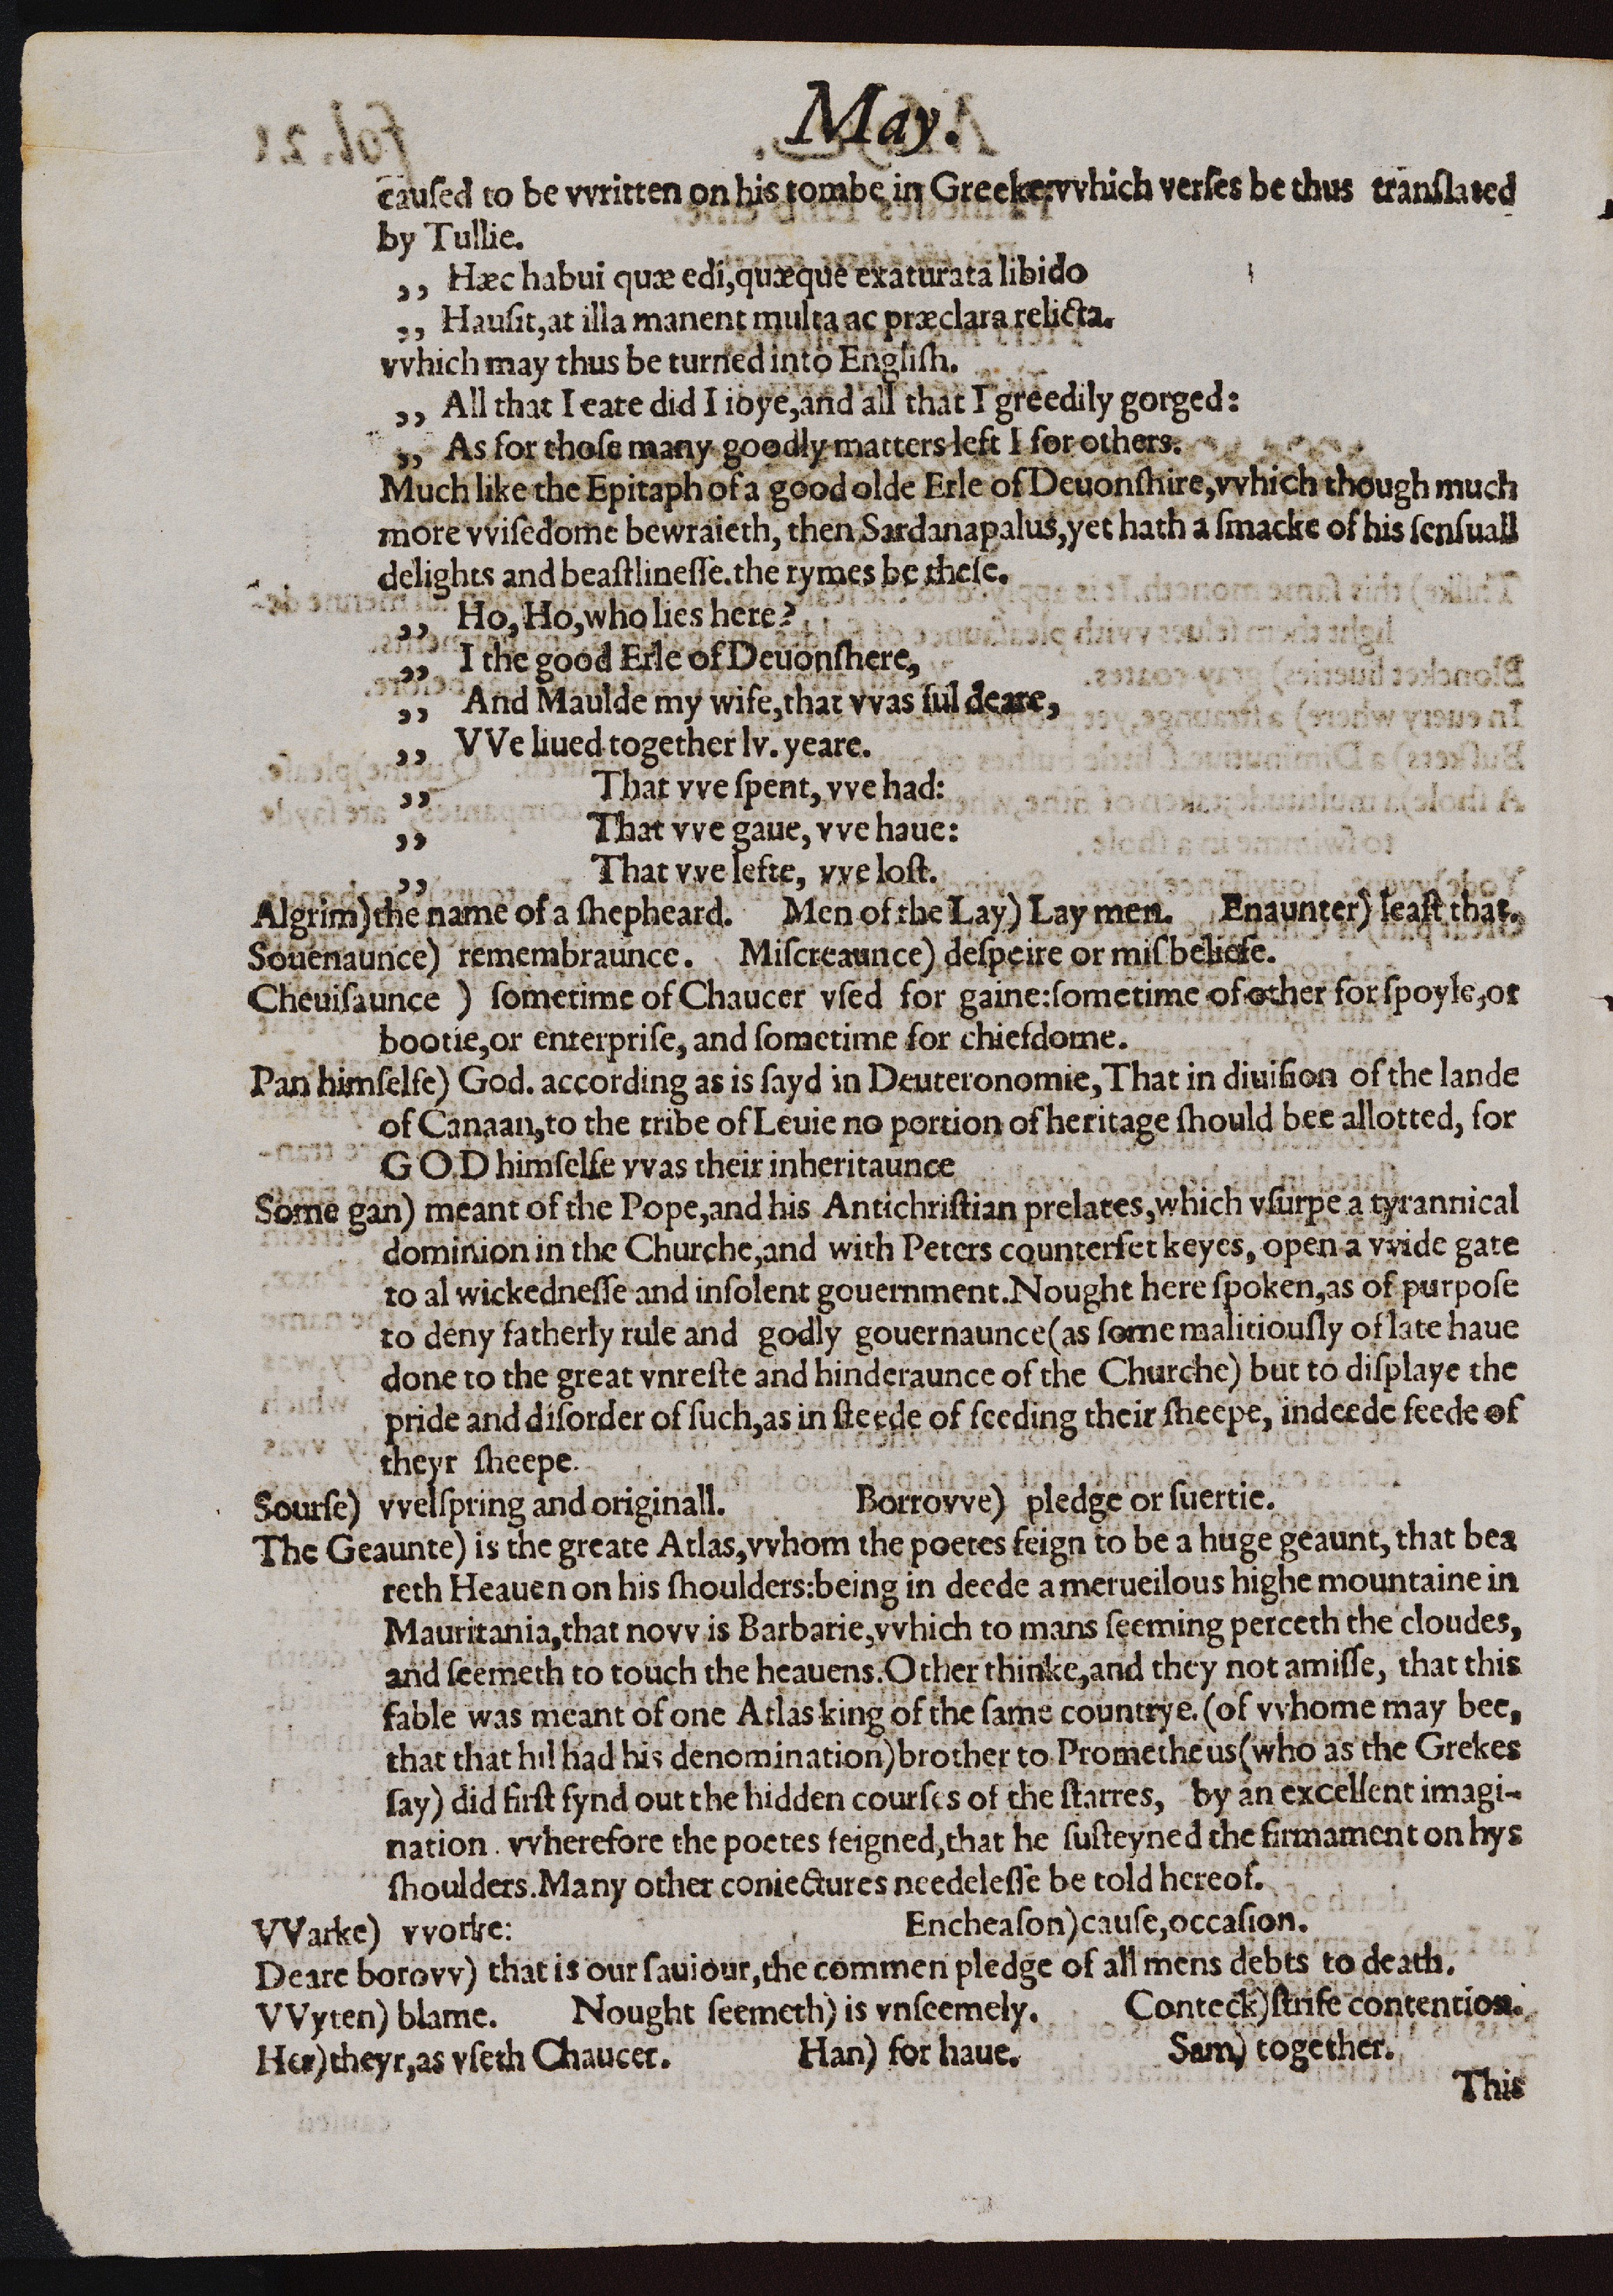 May.
cauſed to be vvritten on his tombe in Greeke: vvhich verſes be thus tranſlated
by Tullie.
,, Hæc habui quæ edi, quæque exaturata libido
,, Hauſit, at illa manent multa ac præclara relicta.
vvhich may thus be turned into Engliſh.
,, All that I eate did I ioye, and all that I greedily gorged:
,, As for thoſe many goodly matters left I for others.
Much like the Epitaph of a good olde Erle of Deuonſhire, vvhich though much
more vviſedome bewraieth, then Sardanapalus, yet hath a ſmacke of his ſenſuall
delights and beaſtlineſſe. the rymes be theſe.
,, Ho, Ho, who lies here?
,, I the good Erle of Deuonſhere,
,, And Maulde my wife, that vvas ful deare,
,, VVe liued together lv. yeare.
,, That vve ſpent, vve had:
,, That vve gaue, vve haue:
,, That vve lefte, vve loſt.
Algrim) the name of a ſhepheard. Men of the Lay) Lay men. Enaunter) leaſt that.
Souenaunce) remembraunce. Miſcreaunce) deſpeire or miſbeliefe.
Cheuiſaunce ) ſometime of Chaucer vſed for gaine: ſometime of other for ſpoyle, or
bootie, or enterpriſe, and ſometime for chiefdome.
Pan himſelfe) God. according as is ſayd in Deuteronomie, That in diuiſion of the lande
of Canaan, to the tribe of Leuie no portion of heritage ſhould bee allotted, for
GOD himſelfe vvas their inheritaunce
Some gan) meant of the Pope, and his Antichriſtian prelates, which vſurpe a tyrannical
dominion in the Churche, and with Peters counterfet keyes, open a vvide gate
to al wickedneſſe and inſolent gouernment. Nought here ſpoken, as of purpoſe
to deny fatherly rule and godly gouernaunce (as ſome malitiouſly of late haue
done to the great vnreſte and hinderaunce of the Churche) but to diſplaye the
pride and diſorder of ſuch, as in ſteede of feeding their ſheepe, indeede feede of
theyr ſheepe.
Sourſe) vvelſpring and originall. Borrovve) pledge or ſuertie.
The Geaunte) is the greate Atlas, vvhom the poetes feign to be a huge geaunt, that bea
reth Heauen on his ſhoulders: being in deede a merueilous highe mountaine in
Mauritania, that novv is Barbarie, vvhich to mans ſeeming perceth the cloudes,
and ſeemeth to touch the heauens. Other thinke, and they not amiſſe, that this
fable was meant of one Atlas king of the ſame countrye. (of vvhome may bee,
that that hil had his denomination) brother to Prometheus (who as the Grekes
ſay) did firſt fynd out the hidden courſes of the ſtarres, by an excellent imagi-
nation. vvherefore the poetes feigned, that he ſuſteyned the firmament on hys
ſhoulders. Many other coniectures needeleſſe be told hereof.
VVarke) vvorke: Encheaſon) cauſe, occaſion.
Deare borovv) that is our ſauiour, the commen pledge of all mens debts to death.
VVyten) blame. Nought ſeemeth) is vnſeemely. Conteck) ſtrife contention.
Her) theyr, as vſeth Chaucer. Han) for haue. Sam) together.
This